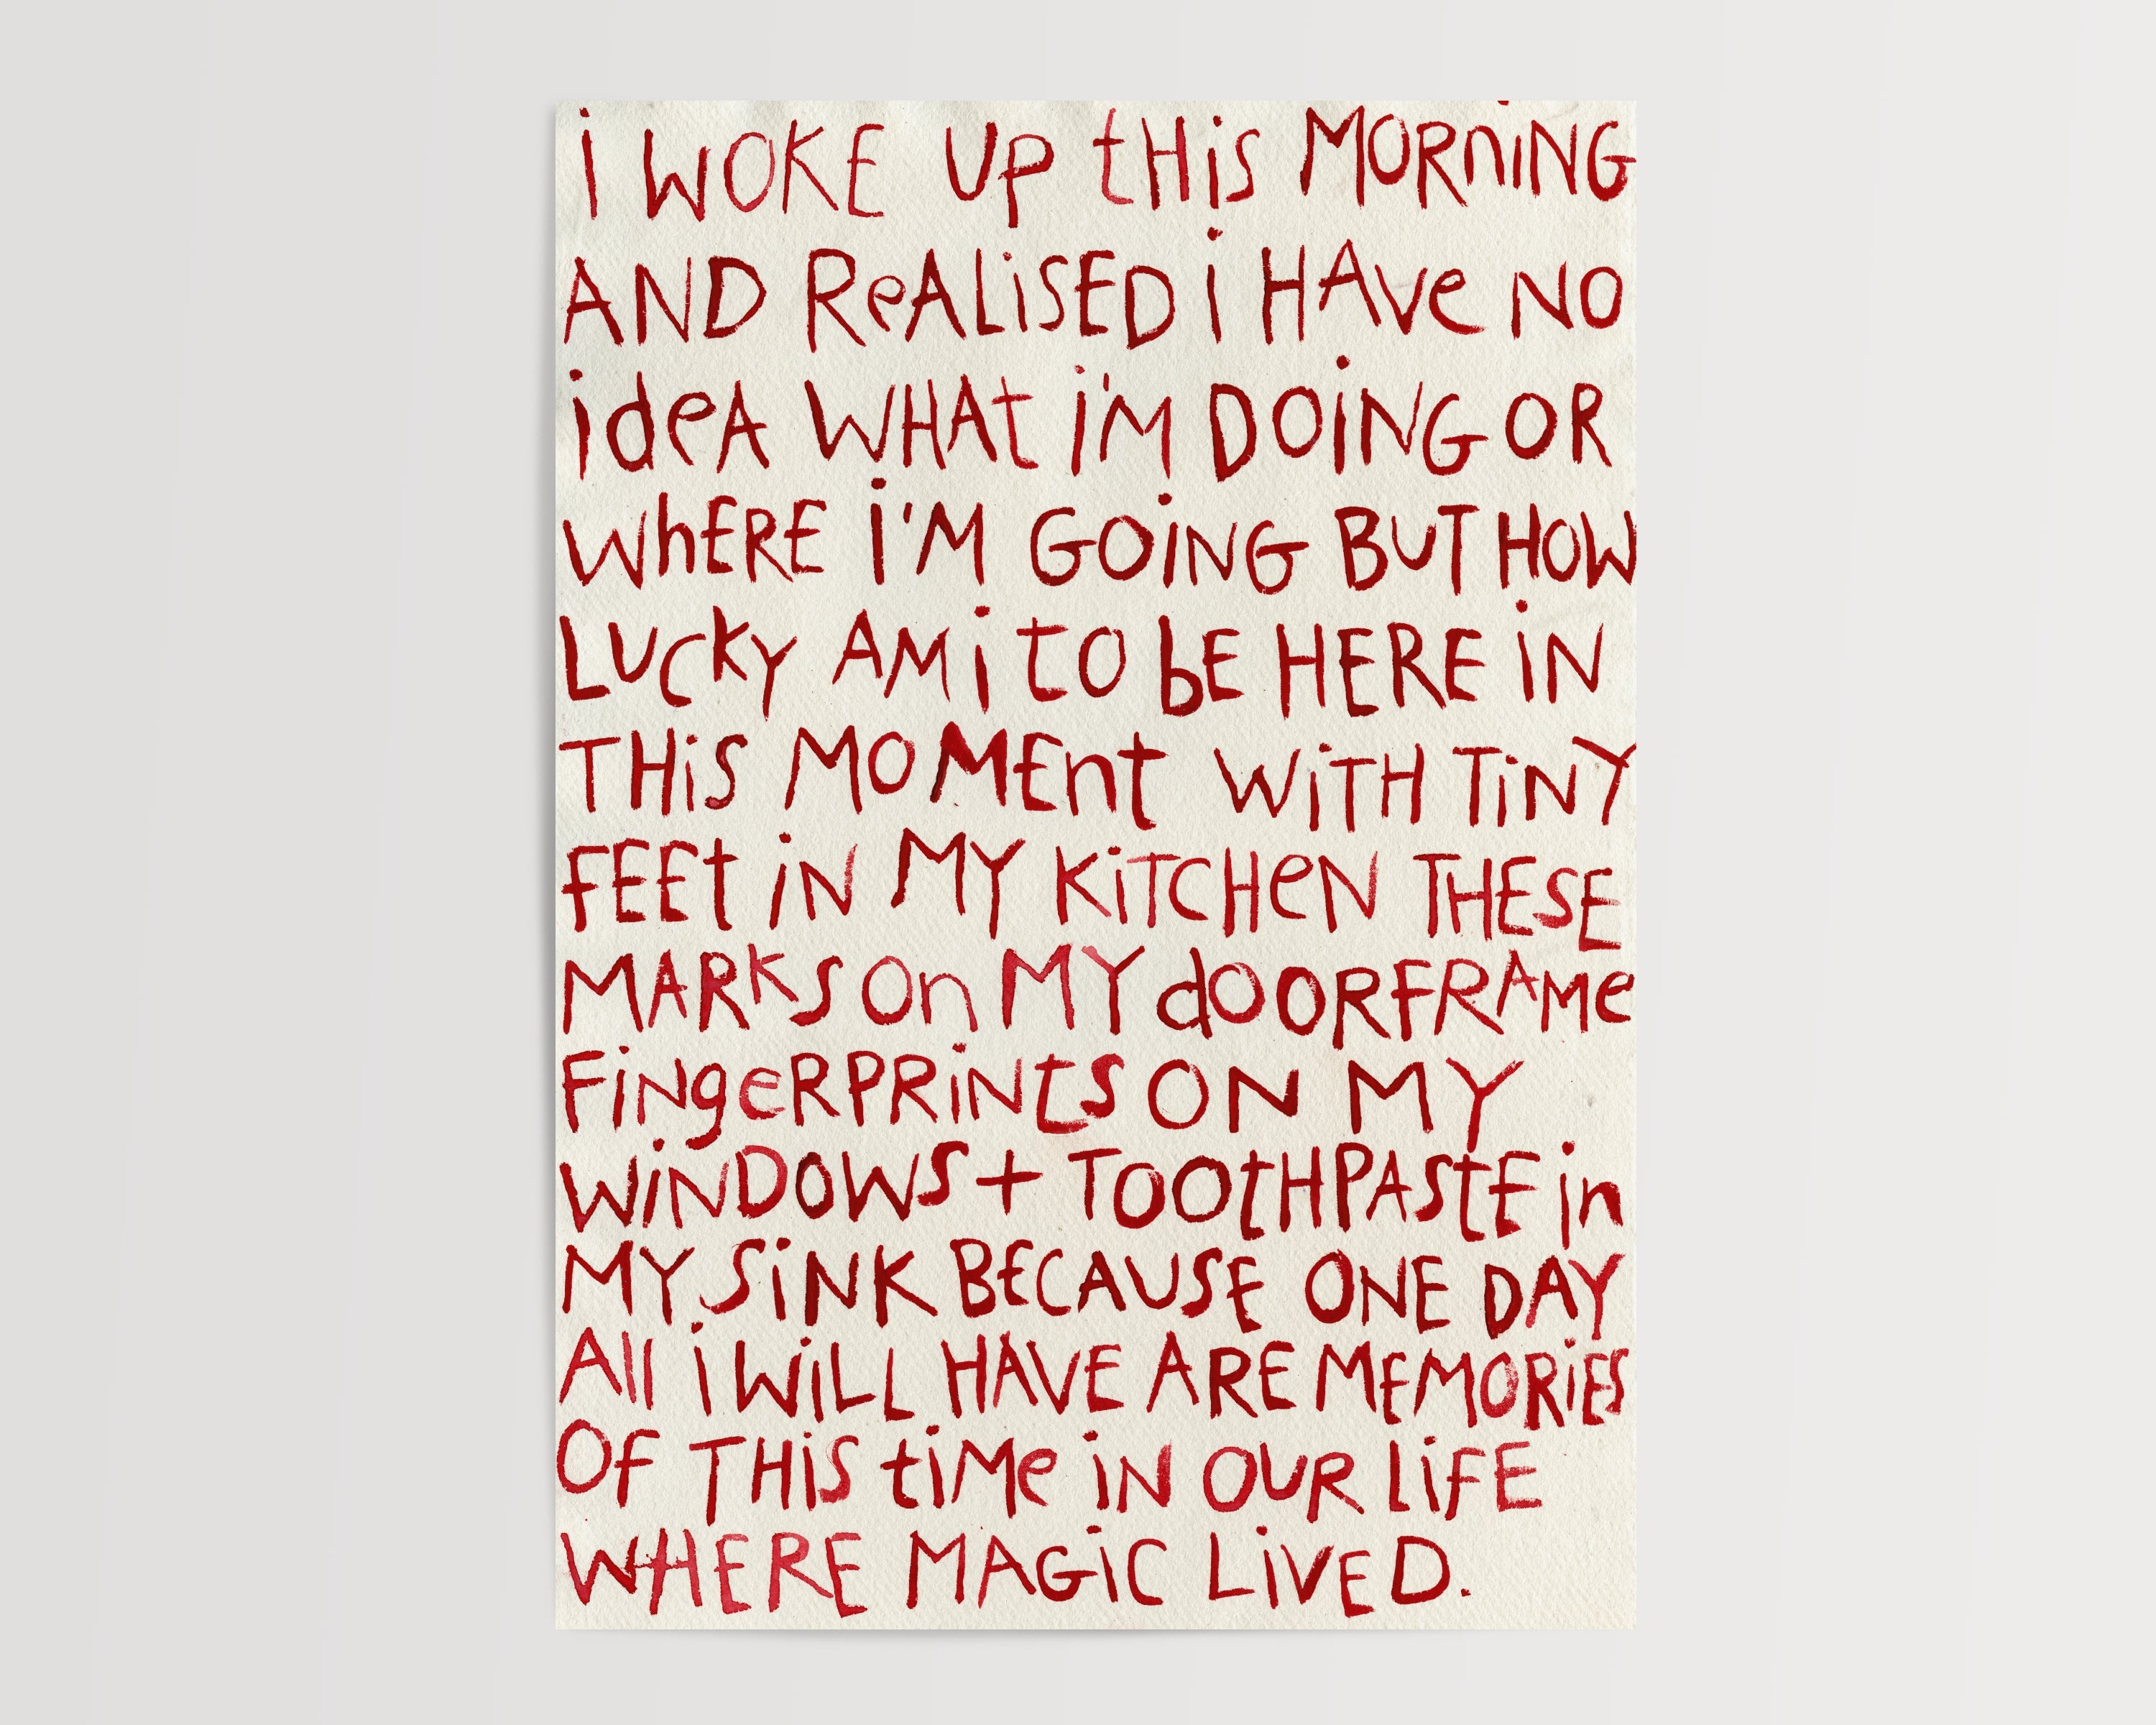 i WOKE UP tHis MORniNG
AND ReALiSED i HAVe NO
ideA WHAt i'M DOiNG OR
WhERE i'M GOiNG BUT HOW
LUCKY AM i tO bE HERE iN
THiS MOMEnt WiTH TiNY
FEEt iN MY KiTCHeN THESE
MARKS On MY dOORFRAMe
FiNgeRPRiNtS ON MY
WiNDOWS + TOOtHPAStE in
MY SiNK BECAUSE ONE DAY
All i WiLL HAVE ARE MEMORiES
OF THiS tiMe iN OUR LiFE
WHERE MAGiC LiVED.